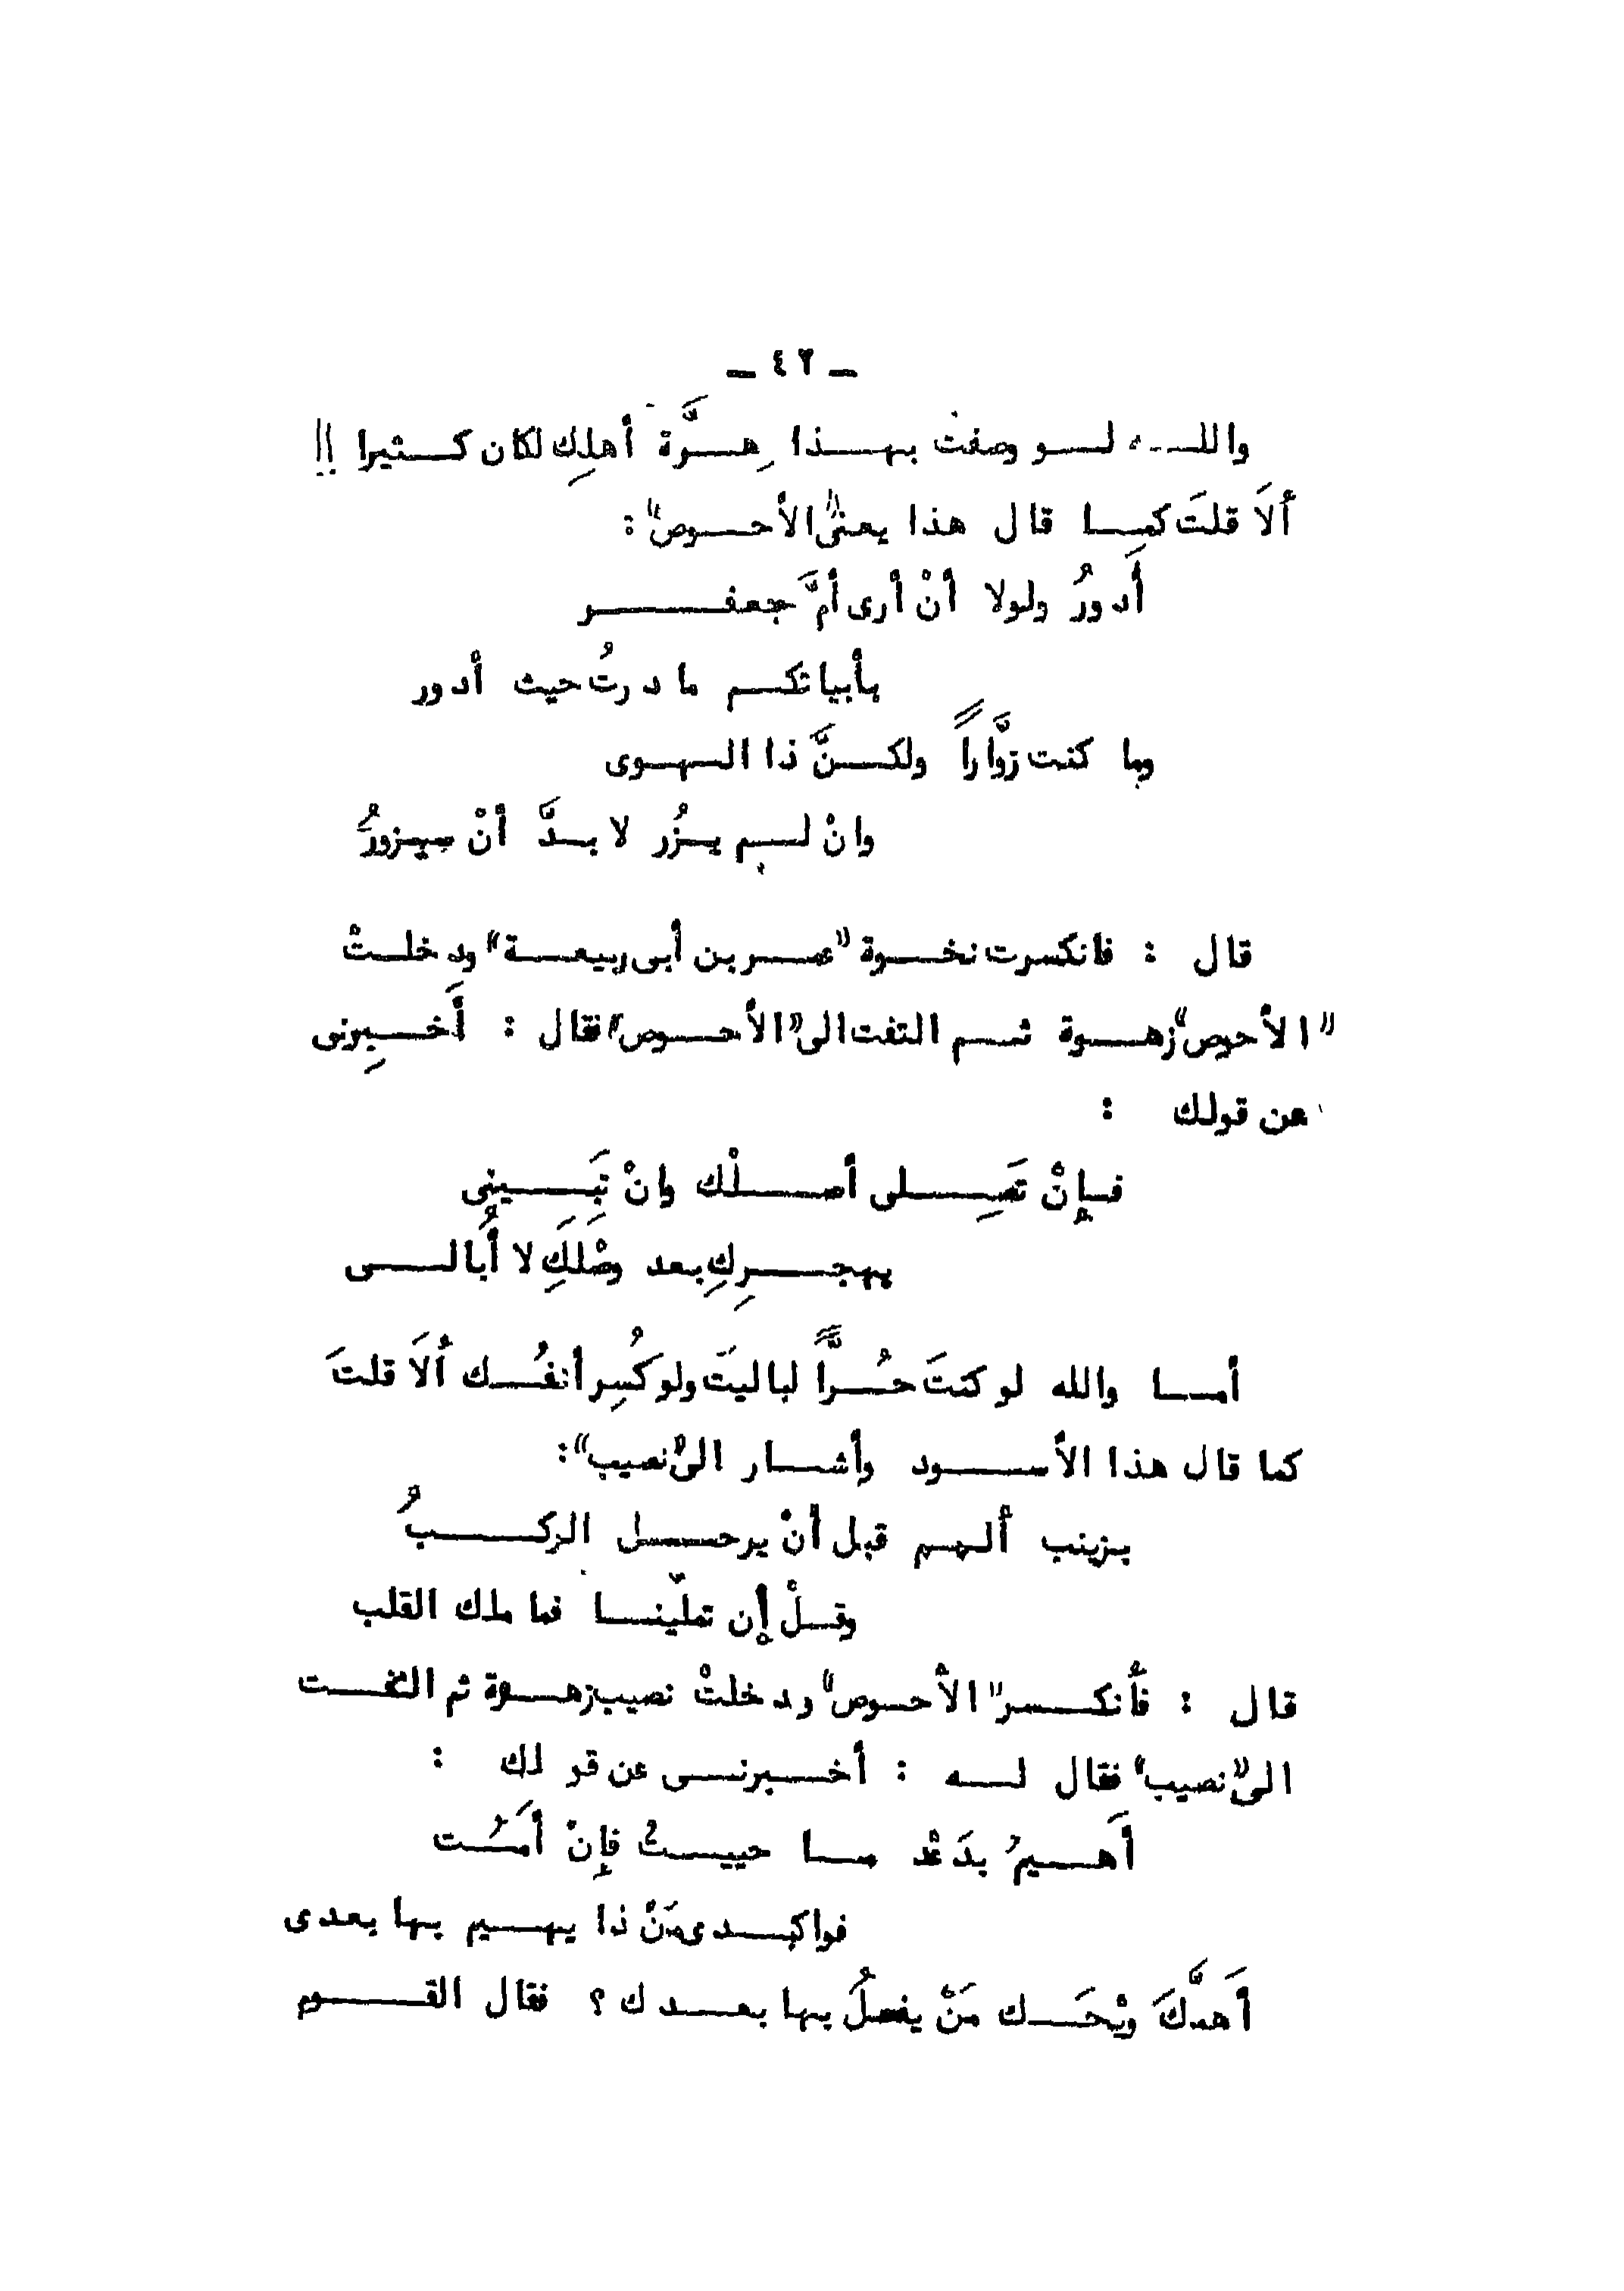 ـ ٤٢ ـ
والله لو وصفت بهذا هِرَّة أهلِك لكان كثيرا !!
ألاَ قلتَ كما قال هذا يعنى "الأحوص" :
أَدورُ ولولا أنْ أرى أمَّ جعفر
بأبياتكم ما درتُ حيث أدور
وما كنت زوَّاراً ولكنَّ ذا الهوى
وانْ لم يزُر لا بدَّ أنْ سيزورُ
قال : فانكسرت نخوة "عمر بن أبى ربيعة" ودخلتْ
"الأحوص" زهوة ثم التفت الى "الأحوص" فقال : أَخبِرنى
عن قولك :
فإنْ تَصِلى أصلْك وانْ تَبينى
بهجرِكِ بعد وصْلَكِ لا أُبالى
أما والله لو كنتَ حُرَّاً لباليتَ ولو كُسِر أنفُك ألاَ قلتَ
كما قال هذا الأسود وأشار الى "نصيب" :
بزينب ألمم قبل أنْ يرحل الركبُ
وقلْ إن تملّينا فما ملك القلب
قال : فأنكسر "الأحوص" ودخلتْ نصيب زهوة ثم التفت
الى "نصيب" فقال له : أخبرنى عن قولك :
أَهيمُ بدَعْد ما حييتُ فإنْ أَمُت
فواكبدى مَنْ ذا يهيم بها بعدى
أَهمَّكَ ويْحَك مَنْ يفعلُ بها بعدك ؟ فقال القوم